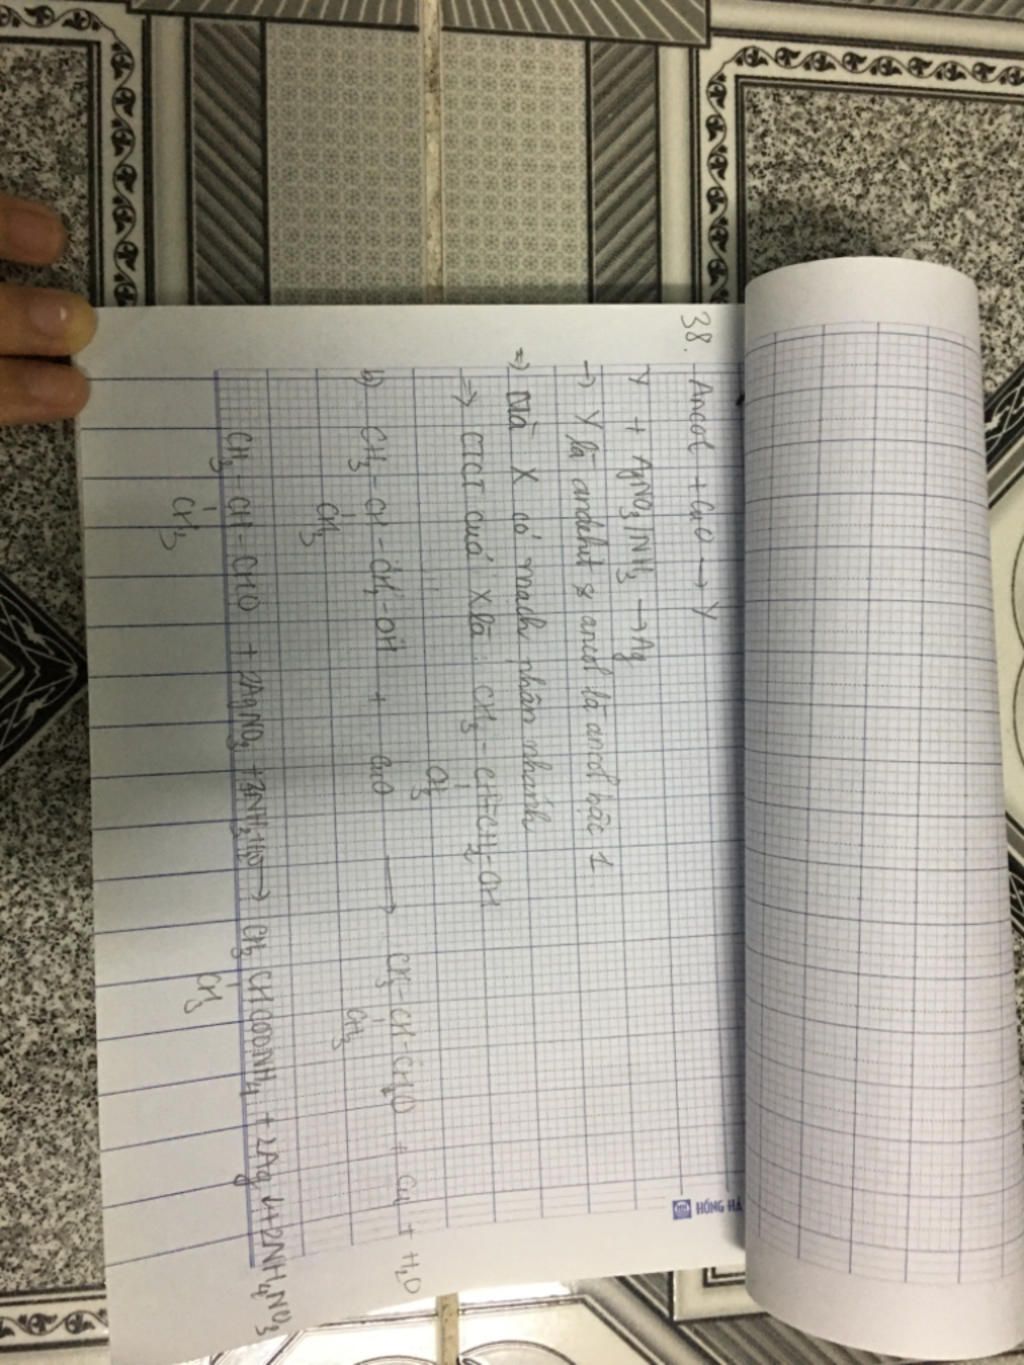 HỒNG HÀ
38. Ancol + CuO → Y
Y + AgNO3/NH3 → Ag
→ Y là andehit & ancol là ancol bậc 1.
=> Mà X có mạch phân nhánh
=> CTCT của X là: CH3 - CH - CH2 - OH
CH3
b) CH3 - CH - CH2 - OH + CuO → CH3 - CH - CHO + Cu + H2O
CH3 CH3
CH3 - CH - CHO + 2AgNO3 + 3NH3 + H2O → CH3 CHCOONH4 + 2Ag ↓ + 2NH4NO3
CH3 CH3